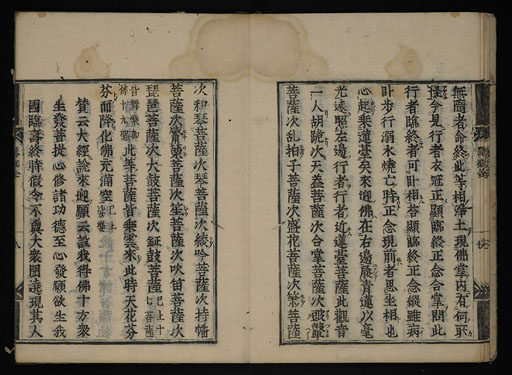 無面者命終此等相淨土現佛掌内有何所
怪今見行者衣冠正顯臨終正念合掌問此
行者臨終者可計相答顯臨終正念縱雖病
計步行弱水燒亡時正念現前者思坐相也
心起乘蓮臺矣來迎佛在右邊展青蓮以毫
光遠照左邊行者行者近蓮臺菩薩此觀音
一人胡跪次天蓋菩薩次合掌菩薩次
菩薩次乱拍子菩薩次盛花菩薩次菩薩
次和琴菩薩次琴菩薩次綾吟菩薩次持幡
菩薩次篳篥菩薩次笙菩薩次吹笛菩薩次
琵琶菩薩次大鼓菩薩次鉦鼓菩薩
此等菩薩皆乘雲來此時天花芬
芬而降化佛充滿空
賛云大經說來迎願云設我得佛十方衆
生發菩提心修諸功德至心發願欲生我
國臨壽終時假令不與大衆圍遶現其人